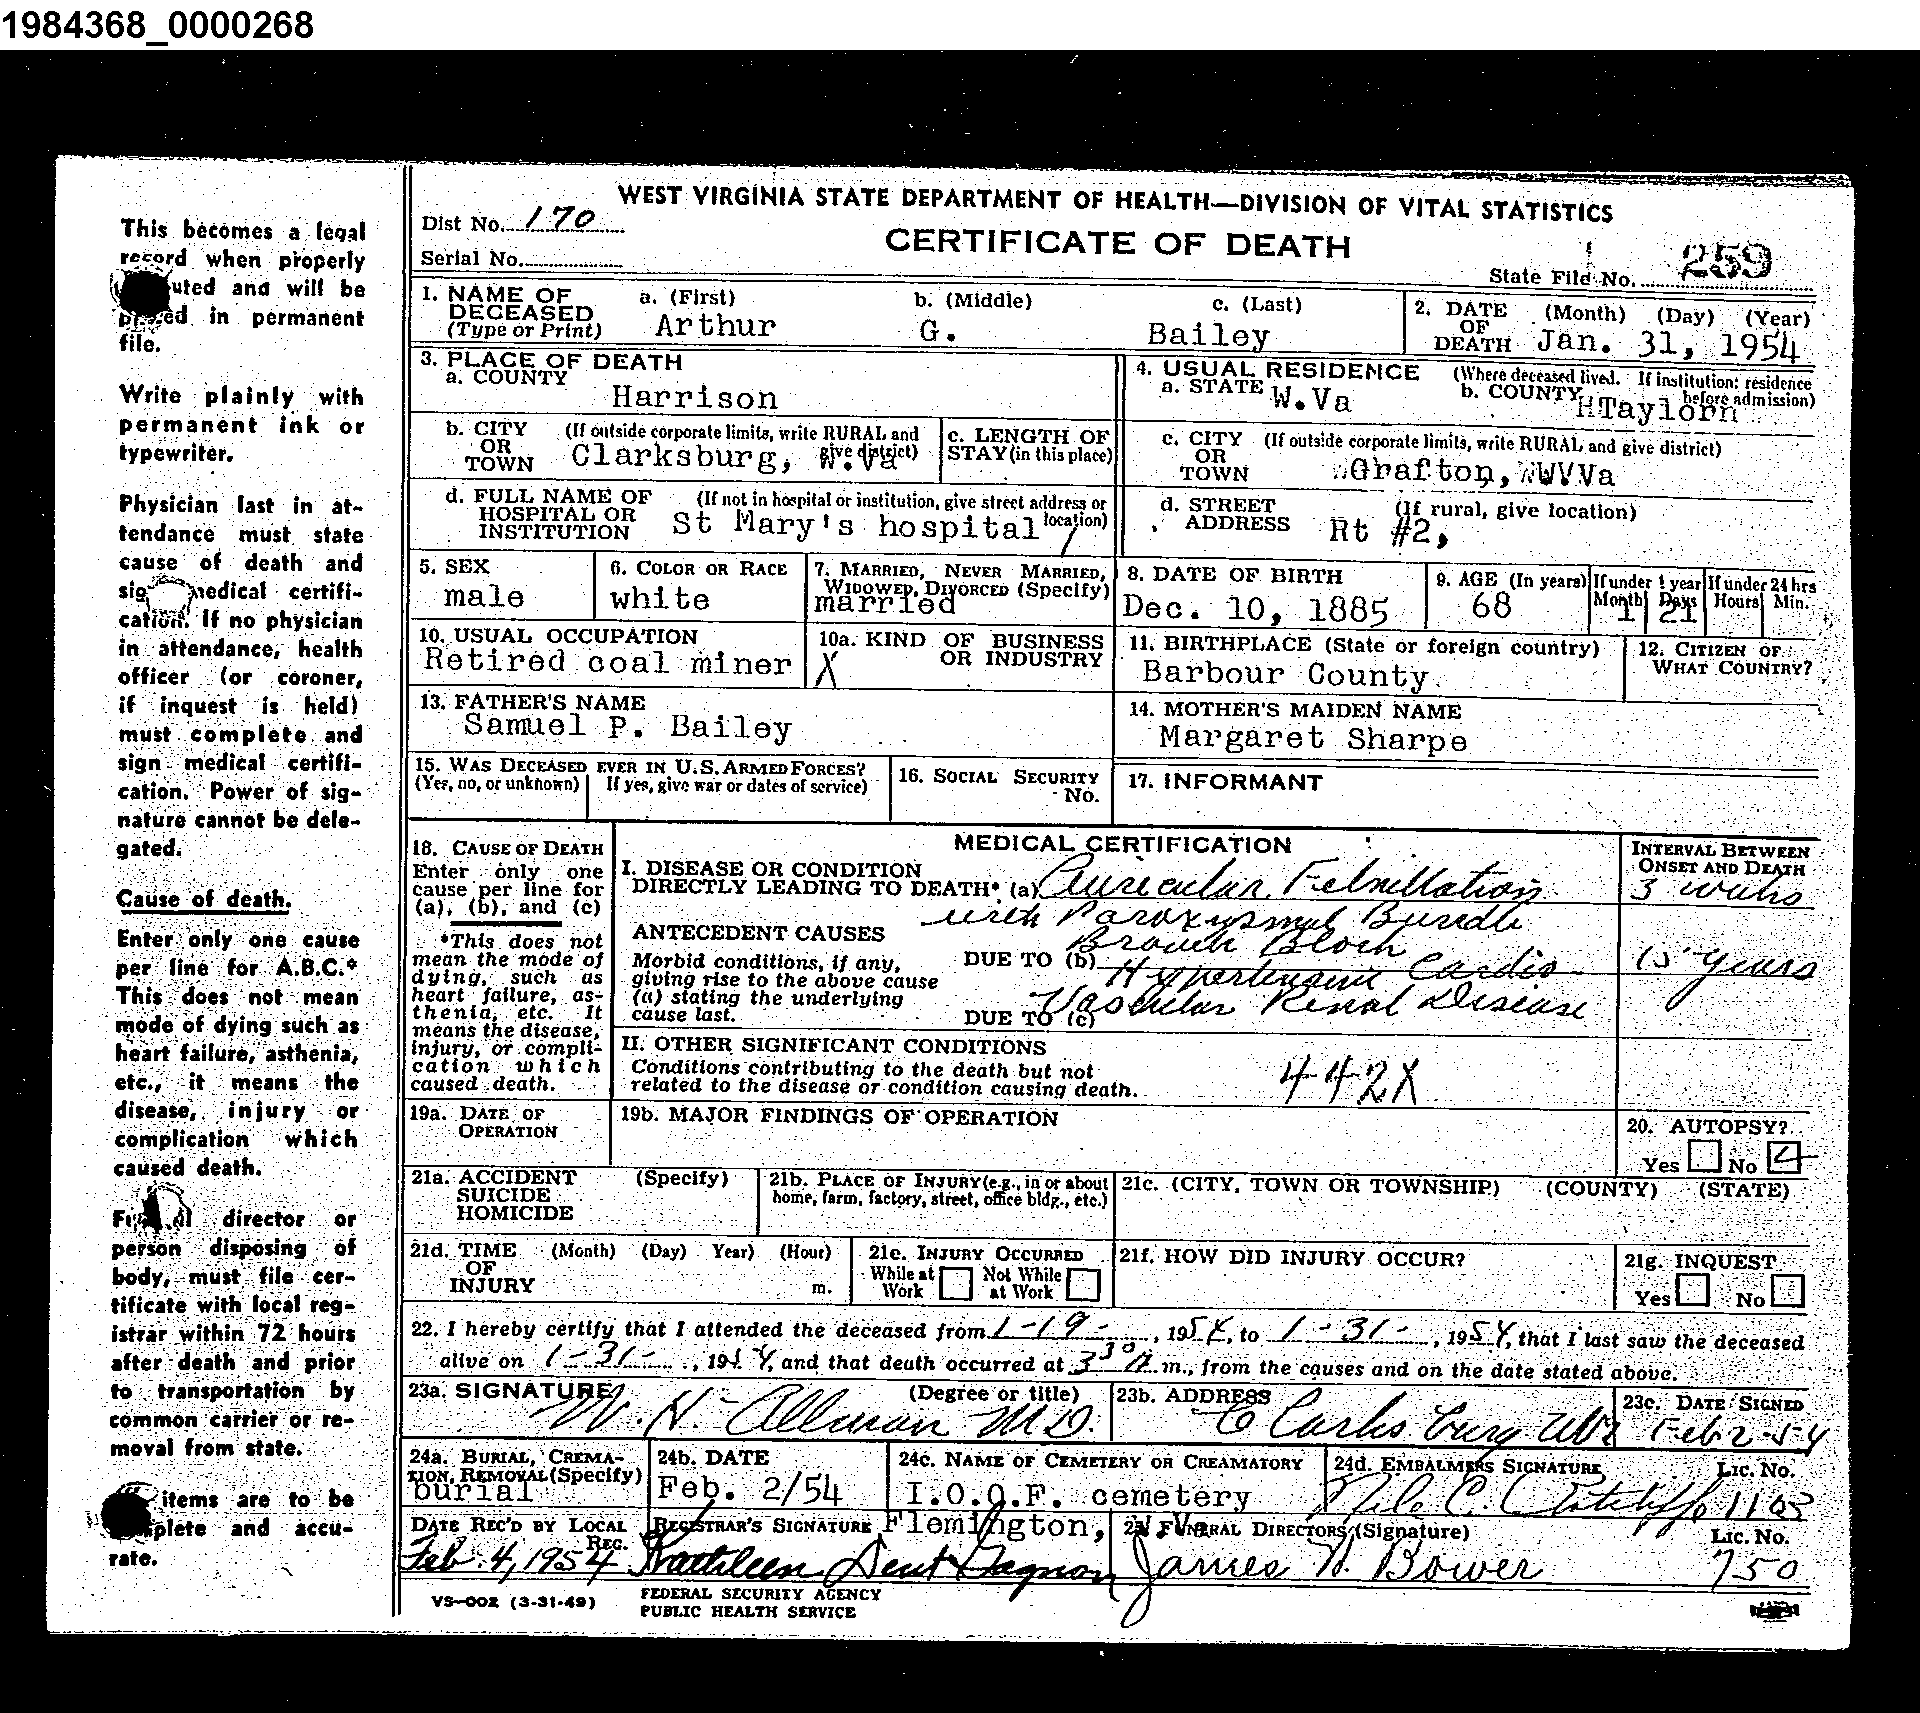 1984368_0000268
WEST VIRGINIA STATE DEPARTMENT OF HEALTH—DIVISION OF VITAL STATISTICS
Dist No. 170
CERTIFICATE OF DEATH
Serial No.
State File No. 259
This becomes a legal
record when properly
uted and will be
ed in permanent
file.
Write plainly with
permanent ink or
typewriter.
Physician last in at-
tendance must state
cause of death and
sig medical certifi-
cation. If no physician
in attendance, health
officer (or coroner,
if inquest is held)
must complete and
sign medical certifi-
cation. Power of sig-
nature cannot be dele-
gated.
Cause of death.
Enter only one cause
per line for A.B.C.*
This does not mean
mode of dying such as
heart failure, asthenia,
etc., it means the
disease, injury or
complication which
caused death.
director or
person disposing of
body, must file cer-
tificate with local reg-
istrar within 72 hours
after death and prior
to transportation by
common carrier or re-
moval from state.
items are to be
plete and accu-
rate.
1. NAME OF DECEASED (Type or Print)
a. (First) Arthur
b. (Middle) G.
c. (Last) Bailey
2. DATE OF DEATH (Month) (Day) (Year)
Jan. 31, 1954
3. PLACE OF DEATH
a. COUNTY
Harrison
4. USUAL RESIDENCE (Where deceased lived. If institution: residence before admission)
a. STATE W.Va
b. COUNTY Taylor
b. CITY OR TOWN (If outside corporate limits, write RURAL and give district)
Clarksburg, W.Va
c. LENGTH OF STAY (in this place)
c. CITY OR TOWN (If outside corporate limits, write RURAL and give district)
Grafton, WVVa
d. FULL NAME OF HOSPITAL OR INSTITUTION (If not in hospital or institution, give street address or location)
St Mary's hospital 1
d. STREET ADDRESS (If rural, give location)
Rt #2,
5. SEX
male
6. COLOR OR RACE
white
7. MARRIED, NEVER MARRIED, WIDOWED, DIVORCED (Specify)
married
8. DATE OF BIRTH
Dec. 10, 1885
9. AGE (In years)
68
If under 1 year
Month 1 Days 21
If under 24 hrs
Hours Min.
10. USUAL OCCUPATION
Retired coal miner
10a. KIND OF BUSINESS OR INDUSTRY
X
11. BIRTHPLACE (State or foreign country)
Barbour County
12. CITIZEN OF WHAT COUNTRY?
13. FATHER'S NAME
Samuel P. Bailey
14. MOTHER'S MAIDEN NAME
Margaret Sharpe
15. WAS DECEASED EVER IN U.S. ARMED FORCES?
(Yes, no, or unknown) If yes, give war or dates of service)
16. SOCIAL SECURITY No.
17. INFORMANT
18. CAUSE OF DEATH
Enter only one
cause per line for
(a), (b), and (c)
*This does not
mean the mode of
dying, such as
heart failure, as-
thenia, etc. It
means the disease,
injury, or compli-
cation which
caused death.
MEDICAL CERTIFICATION
INTERVAL BETWEEN ONSET AND DEATH
I. DISEASE OR CONDITION
DIRECTLY LEADING TO DEATH* (a) Auricular Febrillation
3 weeks
with Paroxysmal Bundle
Branch Block
ANTECEDENT CAUSES
Morbid conditions, if any,
giving rise to the above cause
(a) stating the underlying
cause last.
DUE TO (b) Hypertensive Cardio-
15 years
DUE TO (c) Vascular Renal Disease
II. OTHER SIGNIFICANT CONDITIONS
Conditions contributing to the death but not
related to the disease or condition causing death.
442X
19a. DATE OF OPERATION
19b. MAJOR FINDINGS OF OPERATION
20. AUTOPSY?
Yes No
21a. ACCIDENT SUICIDE HOMICIDE (Specify)
21b. PLACE OF INJURY (e.g., in or about home, farm, factory, street, office bldg., etc.)
21c. (CITY, TOWN OR TOWNSHIP) (COUNTY) (STATE)
21d. TIME OF INJURY (Month) (Day) Year) (Hour) m.
21e. INJURY OCCURRED
While at Work Not While at Work
21f. HOW DID INJURY OCCUR?
21g. INQUEST
Yes No
22. I hereby certify that I attended the deceased from 1-19-, 1954, to 1-31-, 1954, that I last saw the deceased
alive on 1-31-, 1954, and that death occurred at 3 30 A m., from the causes and on the date stated above.
23a. SIGNATURE (Degree or title)
W. H. Allman M.D.
23b. ADDRESS
Clarksburg WVa
23c. DATE SIGNED
Feb 2-54
24a. BURIAL, CREMATION, REMOVAL (Specify)
burial
24b. DATE
Feb. 2/54
24c. NAME OF CEMETERY OR CREAMATORY
I.O.O.F. cemetery
Flemington, W.Va
24d. EMBALMERS SIGNATURE Lic. No.
1103
DATE REC'D BY LOCAL REG.
Feb. 4, 1954
REGISTRAR'S SIGNATURE
Kathleen Dent Gagnon
25. FUNERAL DIRECTORS (Signature) Lic. No.
James W. Bower 750
VS-002 (3-31-49)
FEDERAL SECURITY AGENCY
PUBLIC HEALTH SERVICE